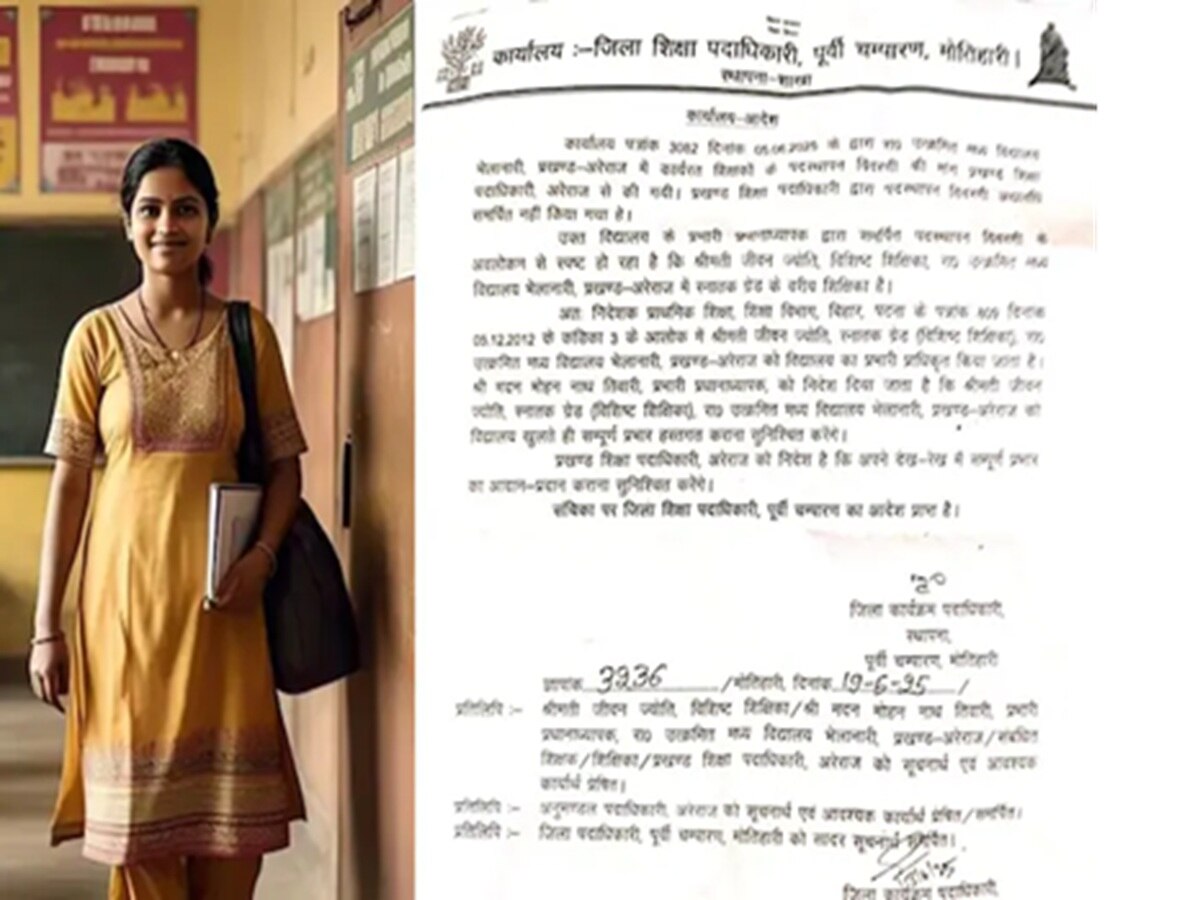 कार्यालय :–जिला शिक्षा पदाधिकारी, पूर्वी चम्पारण, मोतिहारी।
स्थापना–शाखा
कार्यालय–आदेश
कार्यालय पत्रांक 3082 दिनांक के द्वारा रा0 उत्क्रमित मध्य विद्यालय
भेलानारी, प्रखण्ड–अरेराज में कार्यरत शिक्षकों के पदस्थापन विवरणी की मांग प्रखण्ड शिक्षा
पदाधिकारी, अरेराज से की गयी। प्रखण्ड शिक्षा पदाधिकारी द्वारा पदस्थापन विवरणी
समर्पित नहीं किया गया है।
उक्त विद्यालय के प्रभारी प्रधानाध्यापक द्वारा समर्पित पदस्थापन विवरणी के
अवलोकन से स्पष्ट हो रहा है कि श्रीमती जीवन ज्योति, विशिष्ट शिक्षिका, रा0 उत्क्रमित मध्य
विद्यालय भेलानारी, प्रखण्ड–अरेराज में स्नातक ग्रेड के वरीय शिक्षिका है।
अतः निदेशक प्राथमिक शिक्षा, शिक्षा विभाग, बिहार, पटना के पत्रांक 809 दिनांक
05.12.2012 के कंडिका 3 के आलोक में श्रीमती जीवन ज्योति, स्नातक ग्रेड (विशिष्ट शिक्षिका), रा0
उत्क्रमित मध्य विद्यालय भेलानारी, प्रखण्ड–अरेराज को विद्यालय का प्रभारी प्राधिकृत किया जाता है।
श्री मदन मोहन नाथ तिवारी, प्रभारी प्रधानाध्यापक, को निदेश दिया जाता है कि श्रीमती जीवन
ज्योति, स्नातक ग्रेड (विशिष्ट शिक्षिका), रा0 उत्क्रमित मध्य विद्यालय भेलानारी, प्रखण्ड–अरेराज को
विद्यालय खुलते ही सम्पूर्ण प्रभार हस्तगत कराना सुनिश्चित करेंगे।
प्रखण्ड शिक्षा पदाधिकारी, अरेराज को निदेश है कि अपने देख–रेख में सम्पूर्ण प्रभार
का आदान–प्रदान कराना सुनिश्चित करेंगे।
संचिका पर जिला शिक्षा पदाधिकारी, पूर्वी चम्पारण का आदेश प्राप्त है।
जिला कार्यक्रम पदाधिकारी,
स्थापना,
पूर्वी चम्पारण, मोतिहारी
ज्ञापांक 3236 /मोतिहारी, दिनांक 19-6-25 /
प्रतिलिपि :– श्रीमती जीवन ज्योति, विशिष्ट शिक्षिका/श्री मदन मोहन नाथ तिवारी, प्रभारी
प्रधानाध्यापक, रा0 उत्क्रमित मध्य विद्यालय भेलानारी, प्रखण्ड–अरेराज/संबंधित
शिक्षक/शिक्षिका/प्रखण्ड शिक्षा पदाधिकारी, अरेराज को सूचनार्थ एवं आवश्यक
कार्यार्थ प्रेषित।
प्रतिलिपि :– अनुमण्डल पदाधिकारी, अरेराज को सूचनार्थ एवं आवश्यक कार्यार्थ प्रेषित/समर्पित।
प्रतिलिपि :– जिला पदाधिकारी, पूर्वी चम्पारण, मोतिहारी को सादर सूचनार्थ समर्पित।
जिला कार्यक्रम पदाधिकारी,